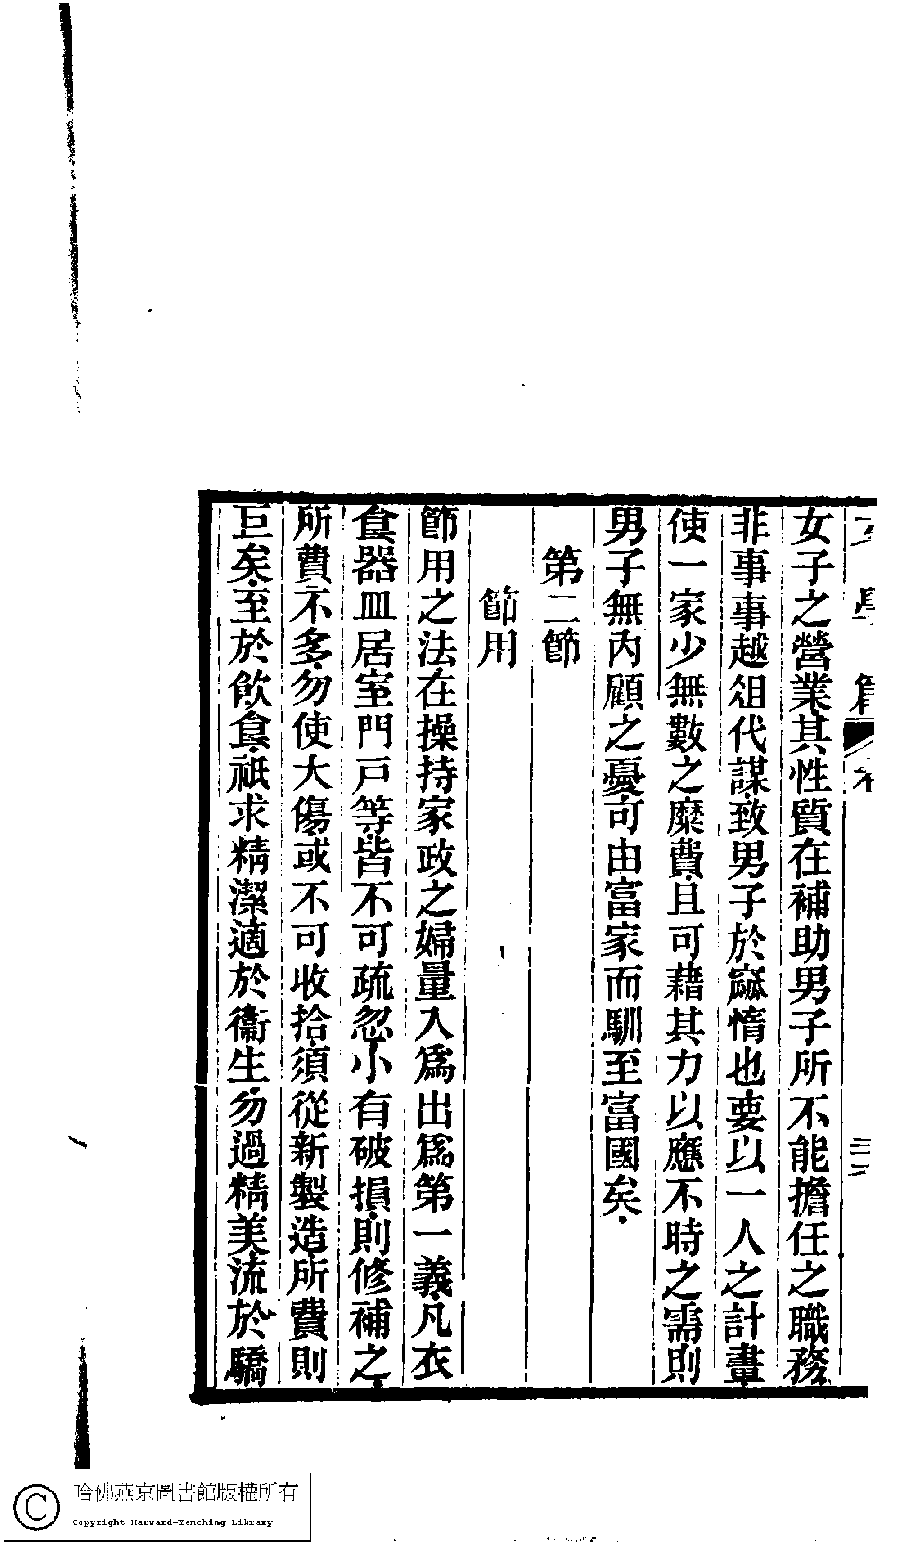 女子之營業其性質在補助男子所不能擔任之職務
非事事越俎代謀致男子於窳惰也要以一人之計畫
使一家少無數之糜費且可藉其力以應不時之需則
男子無內顧之憂可由富家而馴至富國矣.
第二節
節用
節用之法在操持家政之婦量入爲出爲第一義凡衣
食器皿居室門戸等皆不可疏忽小有破損則修補之
所費不多勿使大傷或不可收拾須從新製造所費則
巨矣至於飲食祇求精潔適於衞生勿過精美流於驕
哈佛燕京圖書館版權所有
Copyright Harvard-Yenching Library